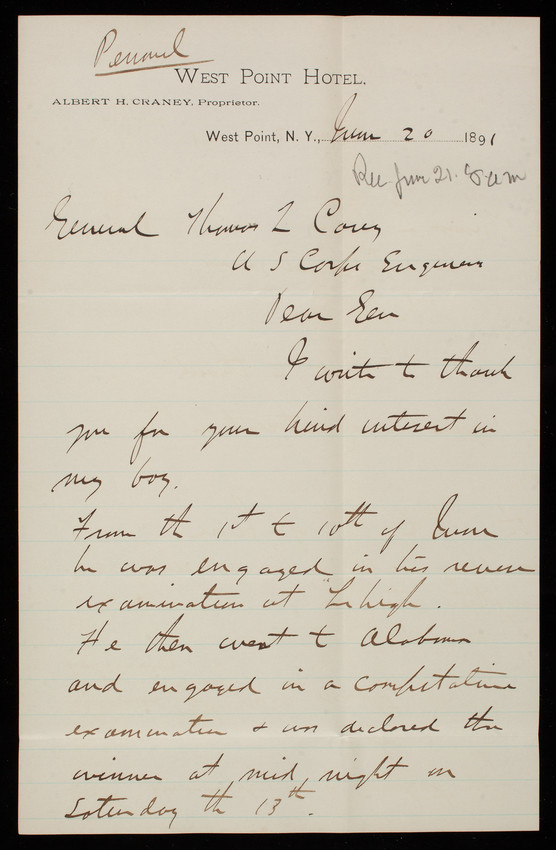 Personal
West Point Hotel,
Albert H. Craney, Proprietor.
West Point, N. Y., June 20 1891
Rec. June 21. 8 a m
General Thomas L Casey
U S Corps Engineers
Dear Gen
I write to thank
you for your kind interest in
my boy.
From the 1st to 10th of June
he was engaged in his
examination at "Lehigh.
He then went to Alabama
and engaged in a competative
examination & was declared the
winner at mid night on
Saturday the 13th.